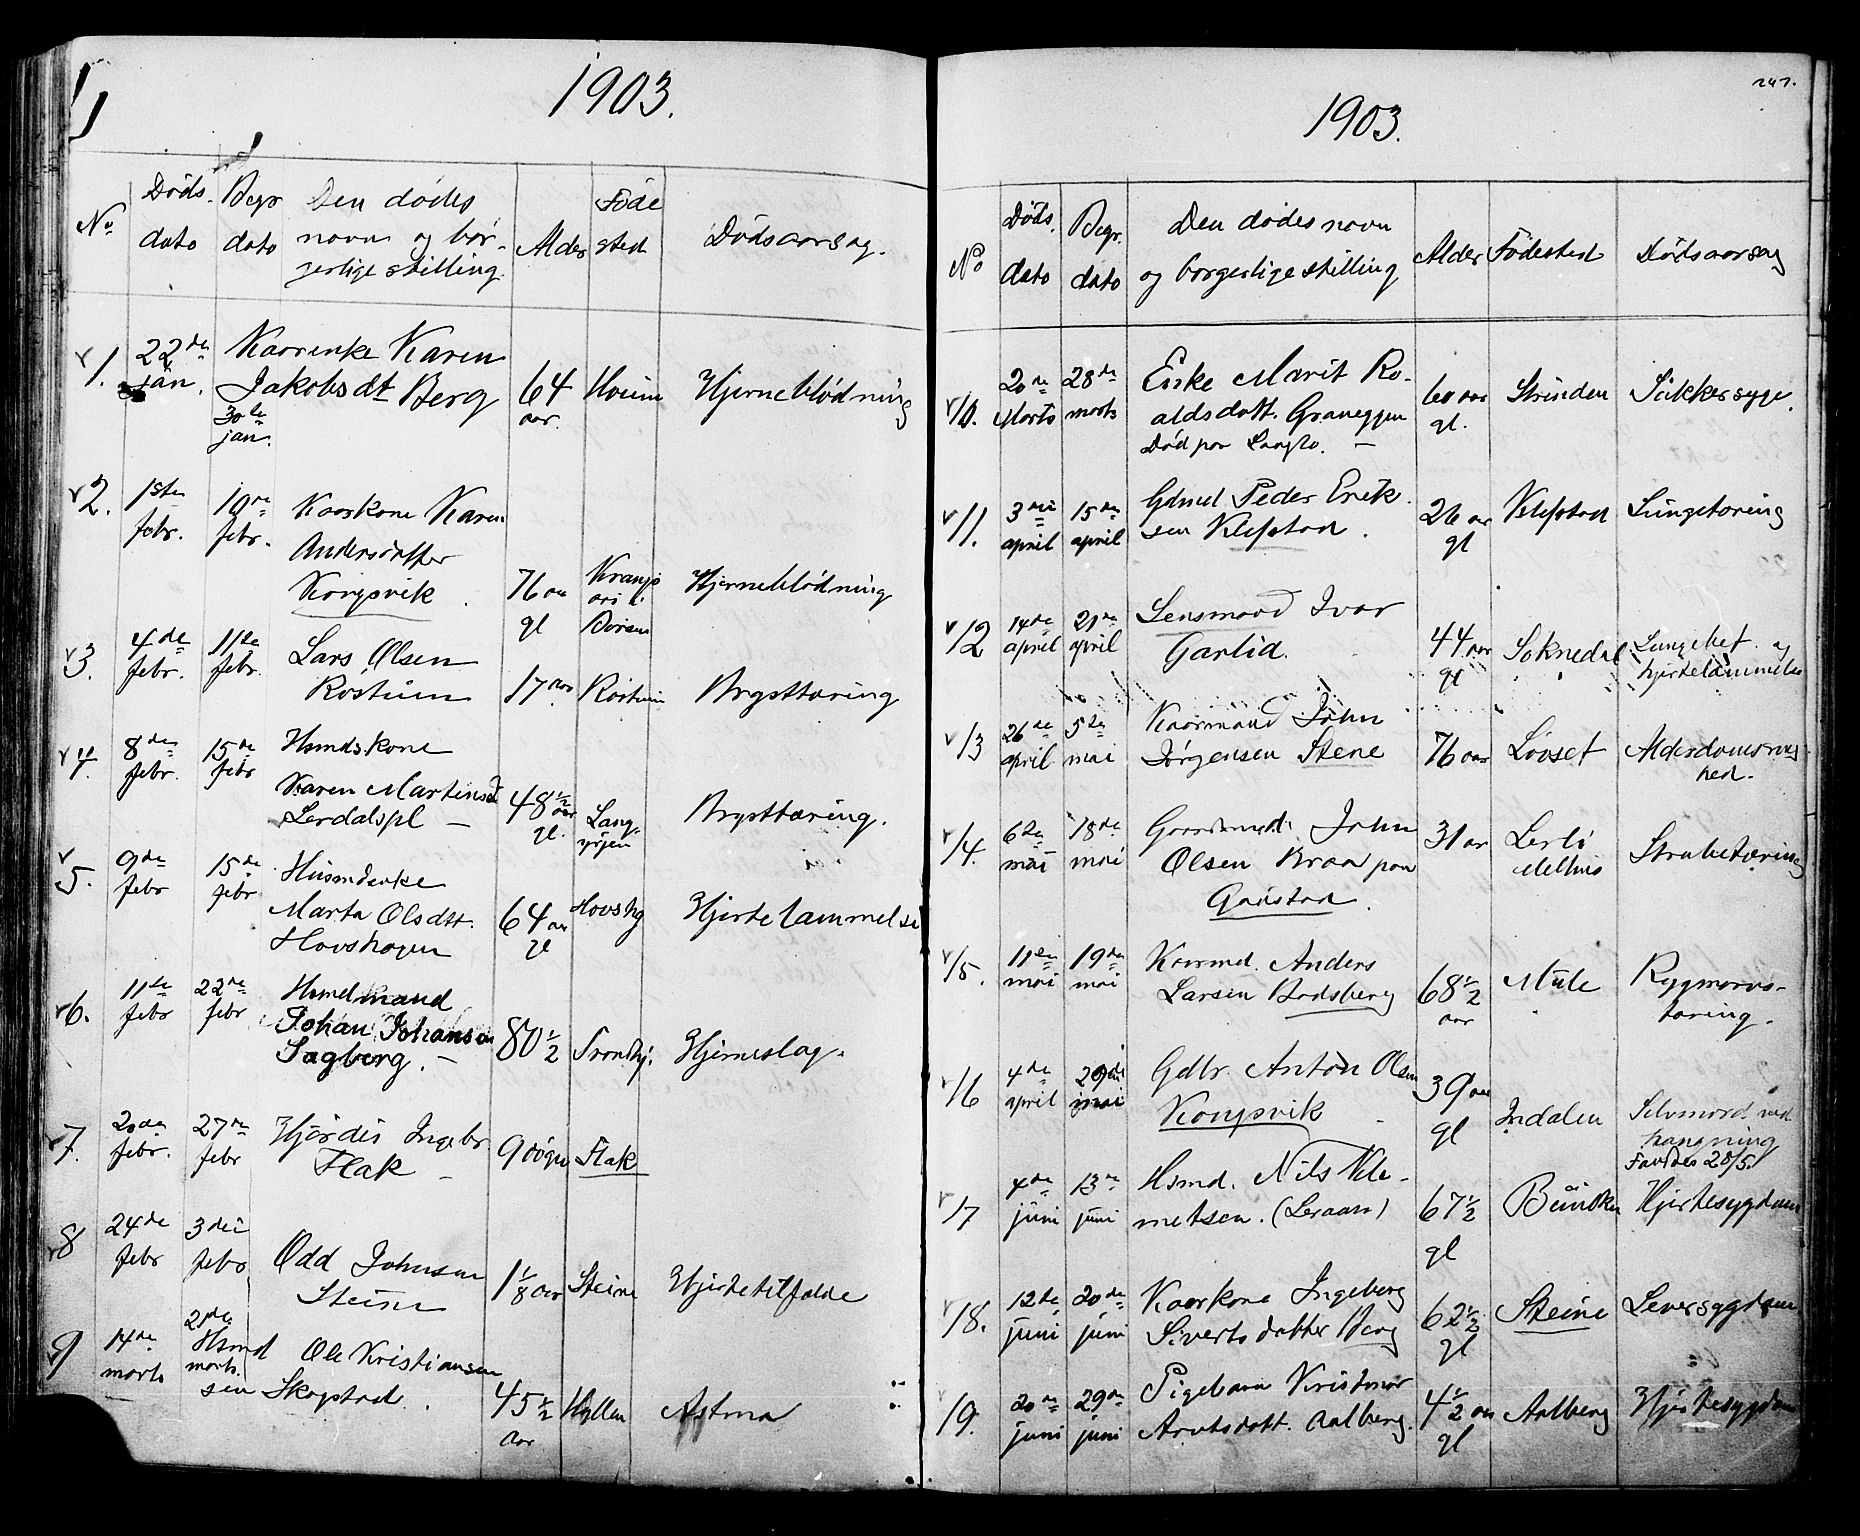 1903.
No
Døds. dato
Begr dato
Den dødes navn og bor-
gerlige stilling.
Alder
Føde sted
Dødsaarsag.
1. 22de jan. 30te jan.
Kaarenke Karen
Jakobsdt Berg
64 aar.
Hjerneblødning
2. 1ste febr. 10de febr.
Kaarkone Karen
Andersdatter
Kongsvik
76 aar gl
Børsen
Hjerneblødning
3. 4de febr. 11te febr.
Lars Olsen
Rostum
17 aar
Rostum
Brysttæring
4. 8de febr. 15de febr
Husmdskone
Karen Martinsd
Lerdalspl —
48½ aar gl.
Brysttæring.
5. 9de febr 15de febr
Husmdenke
Marta Olsdtt.
Hovshagen
64 aar gl
Hovshg
Hjertelammelse
6. 11te febr 22de febr
Husmdmand
Johan Johansen
Sagberg. —
80½
Trondhj.
Hjerneslag.
7. 20de febr. 27de febr
Hjørdis Ingebr
Flak —
9 døgn
Flak
8 24de febr 3die febr
Odd Johnsen
Steine
1 1/8 aar
Steine
Hjertetilfælde
9 14de marts 21de marts.
Hsmd Ole Kristiansen
Skogstad.
45½ aar
Hyllen
Astma
247.
1903.
No
Døds. dato
Begr. dato
Den dødes navn
og borgerlige stilling
Alder
Fødested
Dødsaarsag
10. 20de Marts 28de marts
Enke Marit Ro-
aldsdatt. Graneggen
Død paa Langlo. —
60 aar gl.
Strinden
Sukkersyge.
11. 3die april 15de april
Gdmd Peder Erik
sen Klefstad.
26 aar gl
Klefstad
Lungetæring
12 14de april 21de april
Lensmand Ivar
Garlid.
44 aar gl
Soknedal
Lungebet. og
hjertelammelse
13 26de april 5te mai
Kaarmand John
Jørgensen Stene
76 aar
Løvset
Alderdomssvag
hed.
14. 6te mai 18de mai
Gaardmd. John
Olsen Kraa paa
Gaustad.
31 aar
Lerli
Melhus
Strubetæring
15. 11te mai 19de mai
Kaarmd. Anders
Larsen Bodsberg
68½ aar
Mule
Rygmarvs-
tæring.
16 4de april 29de mai
Gdbr. Anton Olsen
Kongsvik
39 aar gl
Indalen
Selvmord ved
hængning
Fandtes 28/5.
17 4de juni 13de juni
Hsmd. Nils Kle-
metsen. (Leraan)
67½ gl
Buviken
Hjertesygdom
18. 12te juni 20de juni
Kaarkone Ingeborg
Sivertsdatter Berg
62½ gl
Steine
Leversygdom
19. 20de juni 29de juni
Pigebarn Kristmar
Arntsdatt. Aalberg.
4½ aar gl
Aalberg
Hjertesygdom